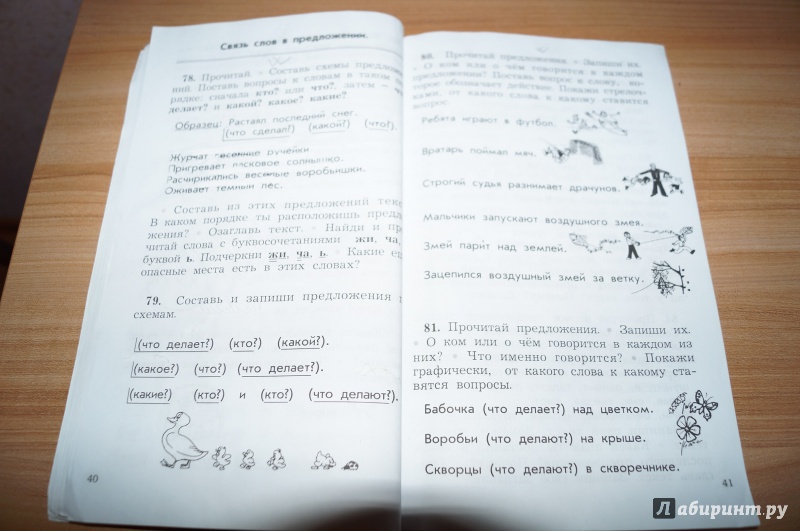 Связь слов в предложении.
78. Прочитай. • Составь схемы предложе
ний. Поставь вопросы к словам в таком по
рядке: сначала кто? или что?, затем — 
делает? и какой? какое? какие?
Образец: Растаял последний снег.
(что сделал?) (какой?) (что?).
Журчат весенние ручейки.
Пригревает ласковое солнышко.
Расчирикались весёлые воробышки.
Оживает тёмный лес.
• Составь из этих предложений текс
В каком порядке ты расположишь предл
жения? • Озаглавь текст. • Найди и пр
читай слова с буквосочетаниями жи, ча,
буквой ь. Подчеркни жи, ча, ь. • Какие ещ
опасные места есть в этих словах?
79. Составь и запиши предложения п
схемам.
(что делает?) (кто?) (какой?).
(какое?) (что?) (что делает?).
(какие?) (кто?) и (кто?) (что делают?).
40
80. Прочитай предложения. • Запиши их.
• О ком или о чём говорится в каждом
предложении? Поставь вопрос к слову, ко-
торое обозначает действие. Покажи стрелоч-
ками, от какого слова к какому ставится
вопрос.
Ребята играют в футбол.
Вратарь поймал мяч.
Строгий судья разнимает драчунов.
Мальчики запускают воздушного змея.
Змей парит над землей.
Зацепился воздушный змей за ветку.
81. Прочитай предложения. • Запиши их.
• О ком или о чём говорится в каждом из
них? • Что именно говорится? • Покажи
графически, от какого слова к какому ста-
вятся вопросы.
Бабочка (что делает?) над цветком.
Воробьи (что делают?) на крыше.
Скворцы (что делают?) в скворечнике.
41
Лабиринт.ру